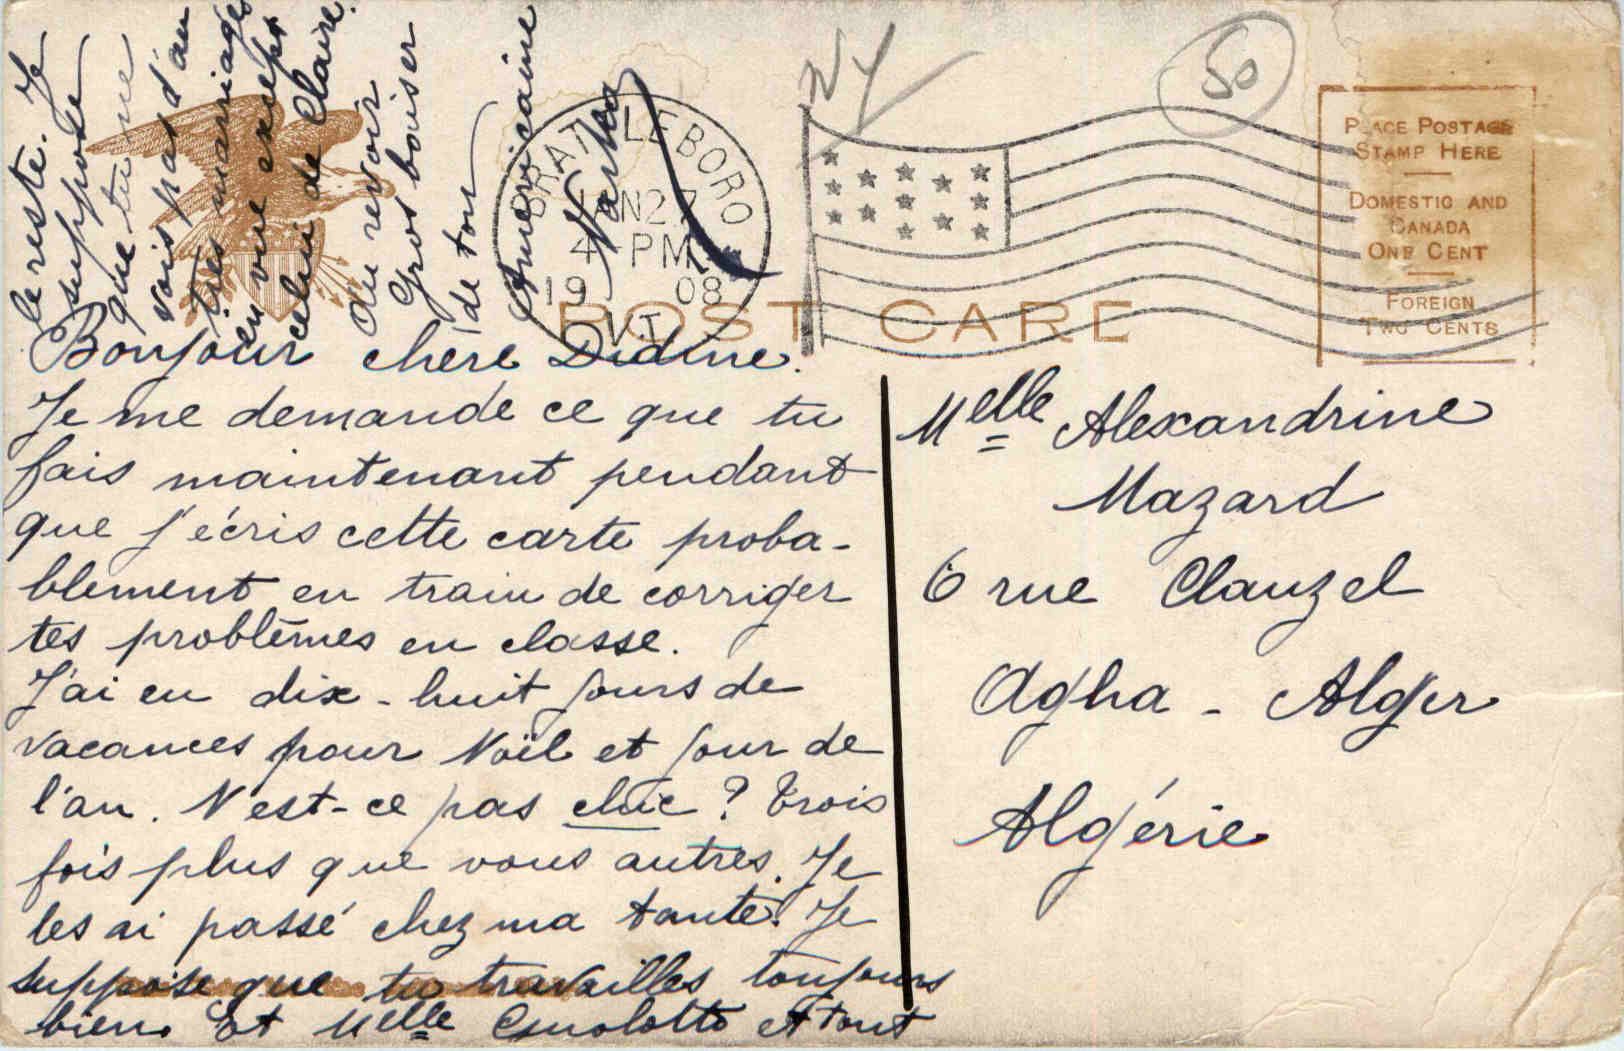 Bonjour chere Didine.
Je me demande ce que tu
fais maintenant pendant
que j'écris cette carte proba-
blement en train de corriger
tes problèmes en classe.
J'ai eu dix-huit jours de
vacances pour Noël et jour de
l'an. N'est-ce pas chic? Trois
fois plus que vous autres. Je
les ai passé chez ma tante. Je
suppose que tu travailles toujours
bien. Et Melle et tout
le reste. Je
suppose
que tu ne
vois pas d'un
très mariages
en vue except
celui de Claire.
Au revoir
Gros baiser
de ton
Américaine
Martha
BRATTLEBORO
JAN 27
4 - PM
1908
VT.
NY
50
POST CARD
PLACE POSTAGE
STAMP HERE
DOMESTIC AND
CANADA
ONE CENT
FOREIGN
TWO CENTS
Melle Alexandrine
Mazard
6 rue Clauzel
Agha - Alger
Algérie